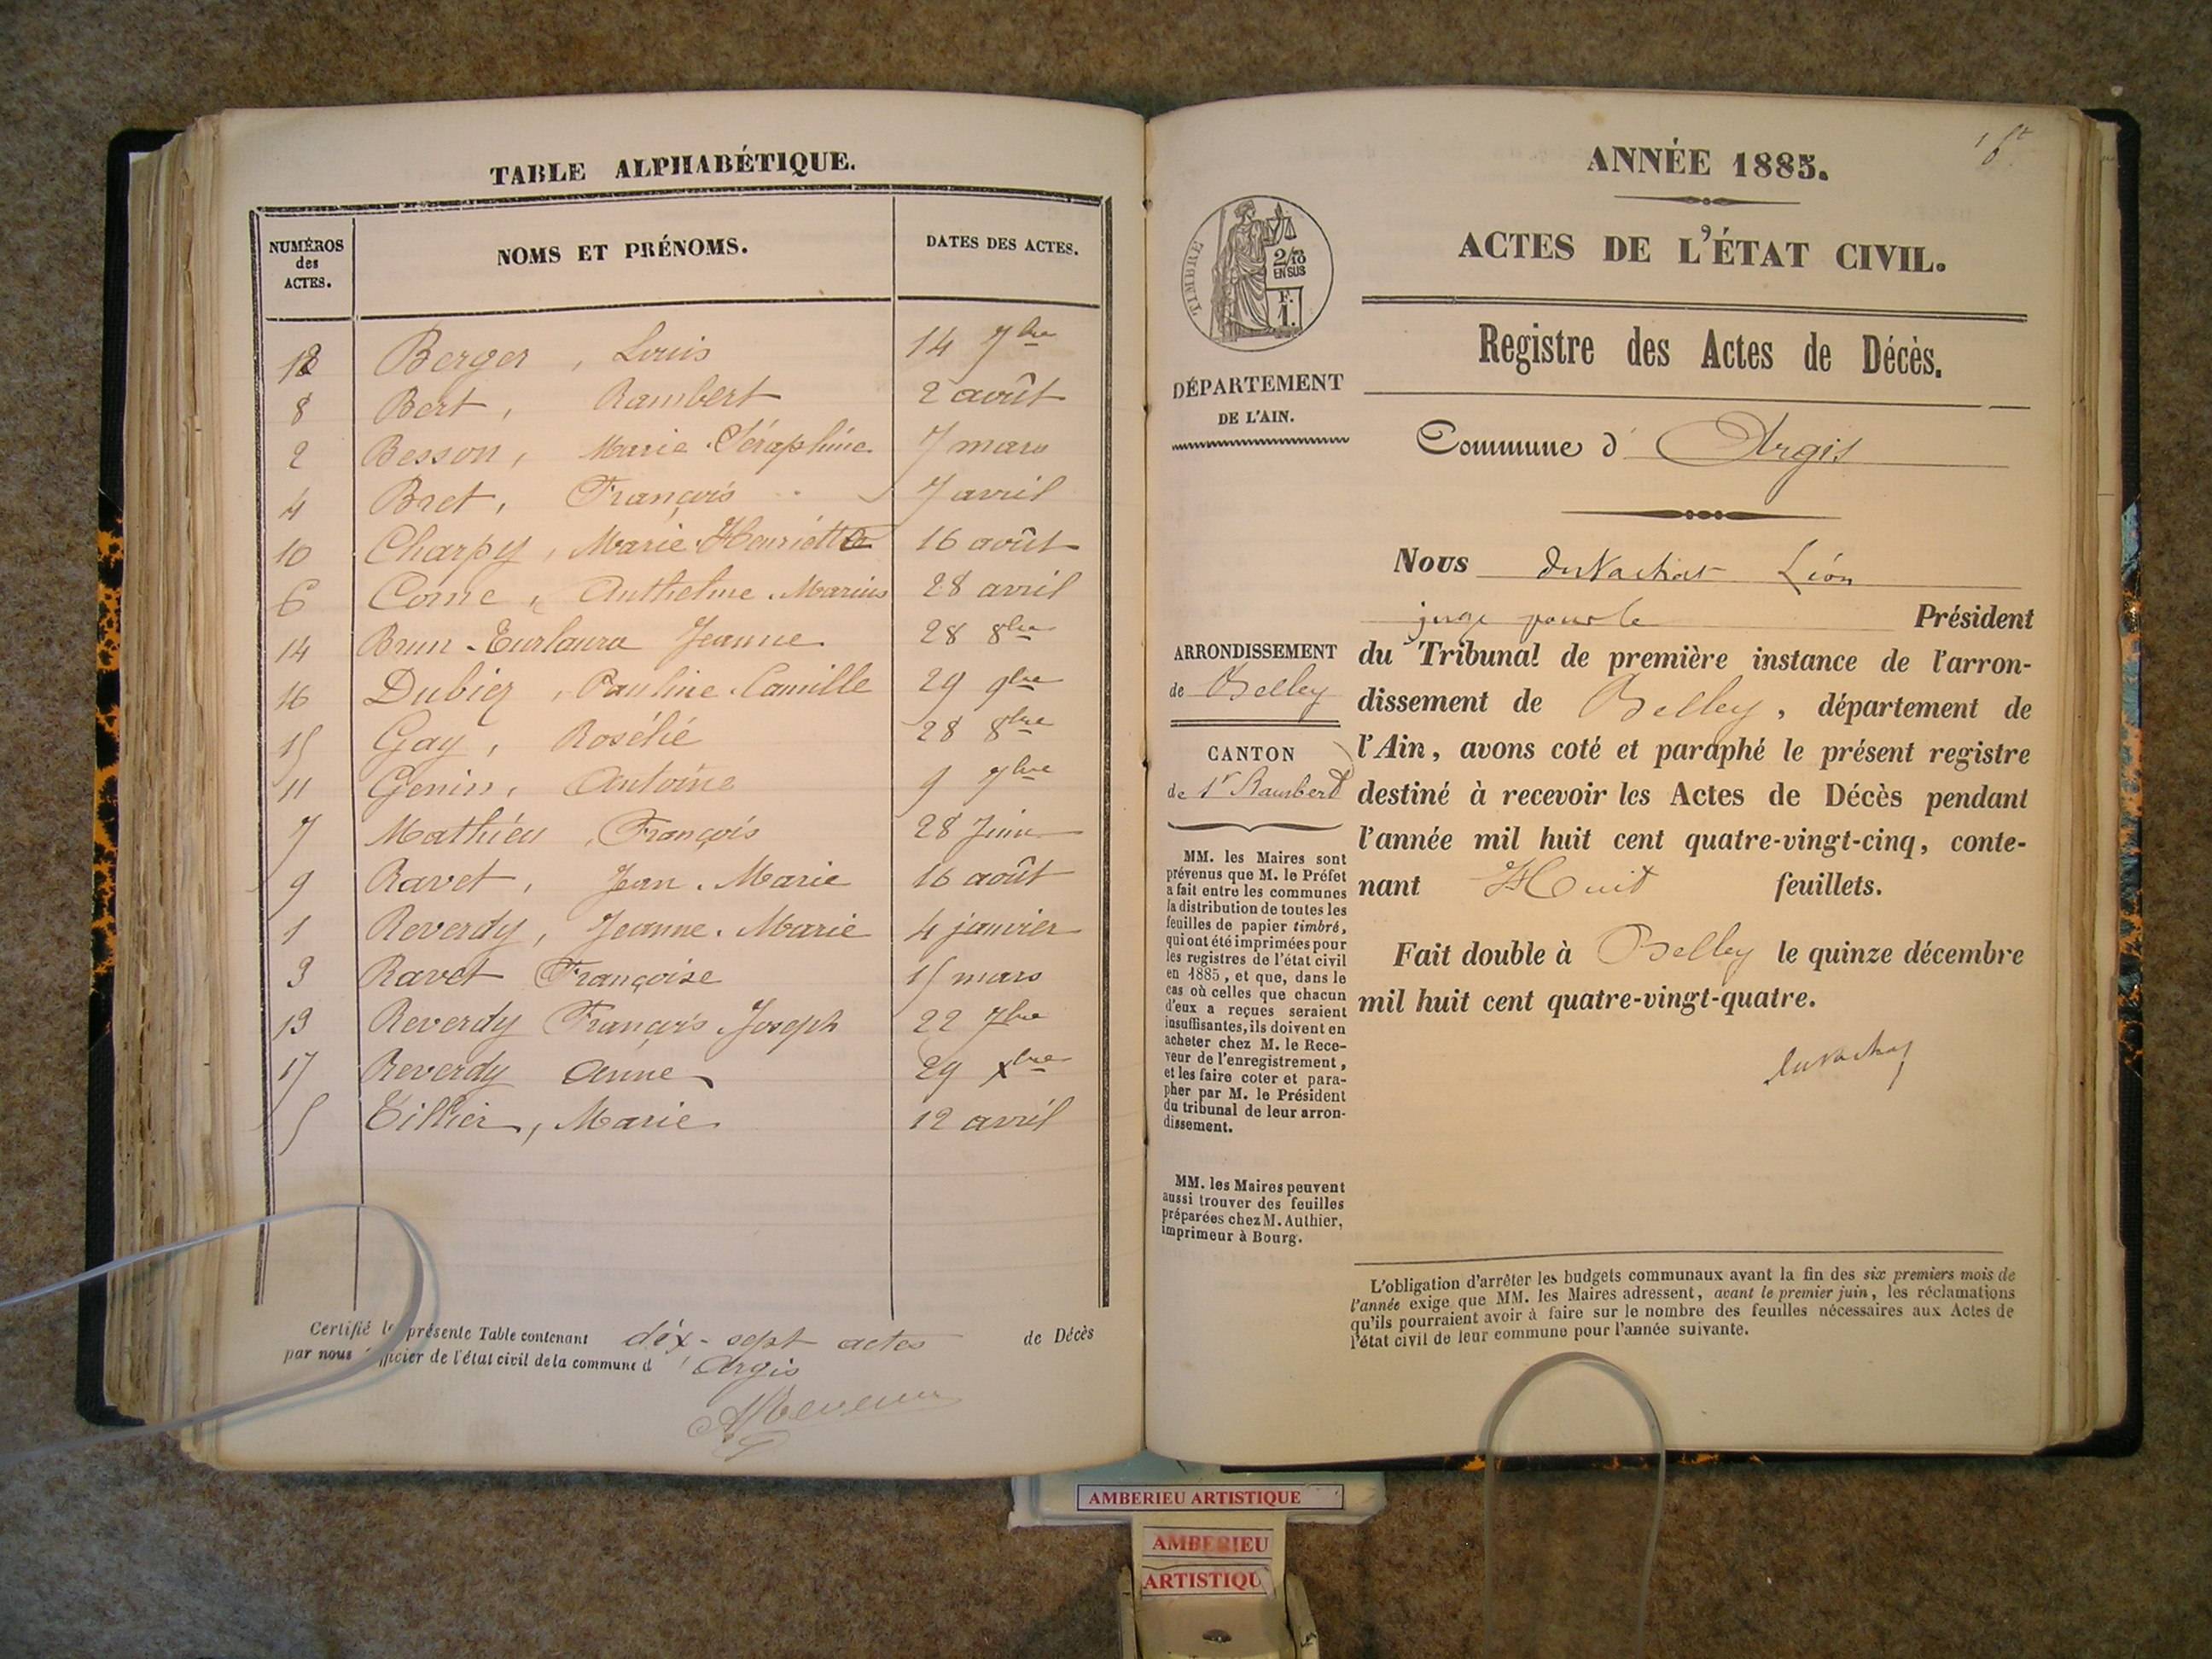 TABLE ALPHABÉTIQUE.
NUMÉROS
des
ACTES.
NOMS ET PRÉNOMS.
DATES DES ACTES.
12 Berger, Louis 14 7bre
8 Bert, Rambert 2 août
2 Besson, Marie Séraphine 7 mars
4 Bret, François 7 avril
10 Charpy, Marie Henriette 16 août
6 Come, Anthelme Marius 28 avril
14 Brun Jeanne 28 8bre
16 Dubiez, Pauline Camille 29 9bre
15 Gay, Rosélié 28 8bre
11 Genin, Antoine 9 7bre
7 Mathieu, François 28 Juin
9 Ravet, Jean Marie 16 août
1 Reverdy, Jeanne Marie 4 janvier
3 Ravet Françoise 15 mars
13 Reverdy François Joseph 22 7bre
17 Reverdy Anne 29 xbre
5 Tillier, Marie 12 avril
Certifié la présente Table contenant dix-sept actes de Décès
par nous officier de l'état civil de la commune d'Argis
1 ft
ANNÉE 1885.
ACTES DE L'ÉTAT CIVIL.
Registre des Actes de Décès.
TIMBRE
2/10
EN SUS
F.
1.
DÉPARTEMENT
DE L'AIN.
Commune d'Argis
Nous Duvachat Léon
juge pour le Président
du Tribunal de première instance de l'arron-
dissement de Belley, département de
l'Ain, avons coté et paraphé le présent registre
destiné à recevoir les Actes de Décès pendant
l'année mil huit cent quatre-vingt-cinq, conte-
nant Huit feuillets.
Fait double à Belley le quinze décembre
mil huit cent quatre-vingt-quatre.
Duvachat
ARRONDISSEMENT
de Belley
CANTON
de St Rambert
MM. les Maires sont
prévenus que M. le Préfet
a fait entre les communes
la distribution de toutes les
feuilles de papier timbré,
qui ont été imprimées pour
les registres de l'état civil
en 1885, et que, dans le
cas où celles que chacun
d'eux a reçues seraient
insuffisantes, ils doivent en
acheter chez M. le Rece-
veur de l'enregistrement,
et les faire coter et para-
pher par M. le Président
du tribunal de leur arron-
dissement.
MM. les Maires peuvent
aussi trouver des feuilles
préparées chez M. Authier,
imprimeur à Bourg.
L'obligation d'arrêter les budgets communaux avant la fin des six premiers mois de
l'année exige que MM. les Maires adressent, avant le premier juin, les réclamations
qu'ils pourraient avoir à faire sur le nombre des feuilles nécessaires aux Actes de
l'état civil de leur commune pour l'année suivante.
AMBERIEU ARTISTIQUE
AMBERIEU
ARTISTIQU